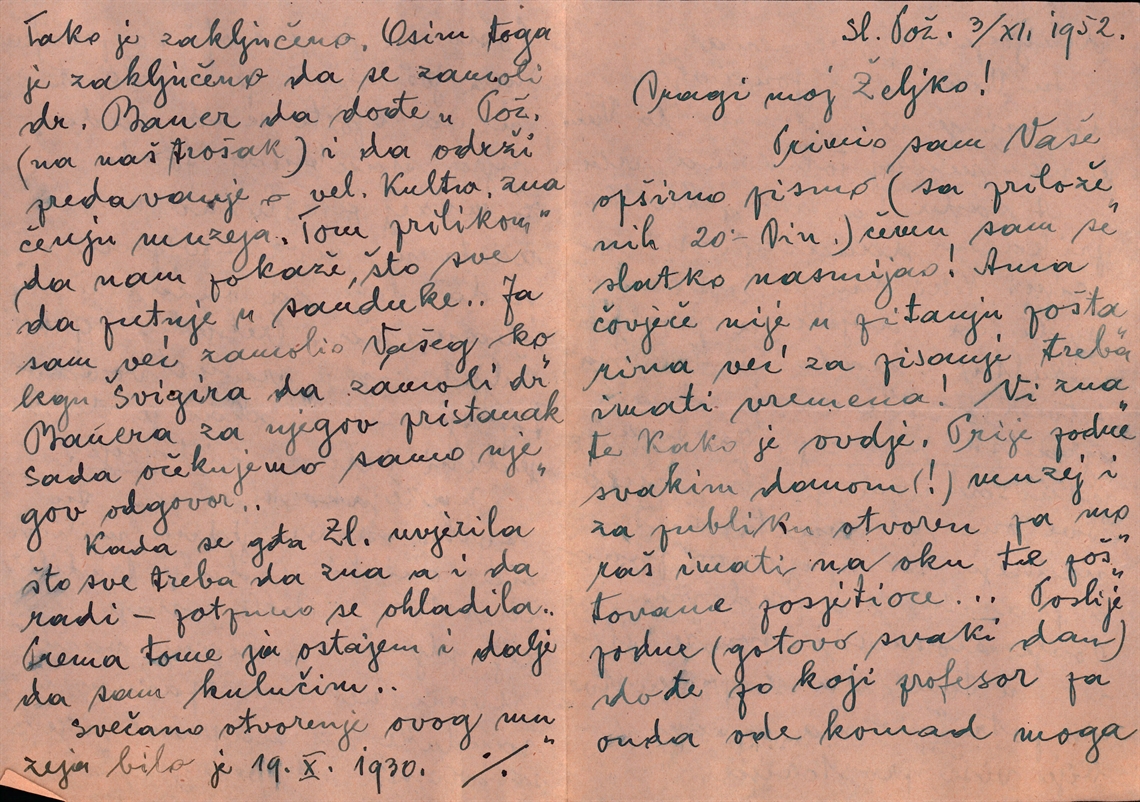 Sl. Pož. 3/XI. 1952.
Dragi moj Željko!
Primio sam Vaše
opširno pismo (sa prilože"
nih 20.- Din.) čemu sam se
slatko nasmijao! Ama
čovječe nije u pitanju pošta"
rina već za pisanje treba
imati vremena! Vi zna"
te kako je ovdje. Prije podne
svakim danom(!) muzej i
za publiku otvoren pa mo"
raš imati na oku te poš"
tovane posjetioce... Poslije
podne (gotovo svaki dan)
dođe po koji profesor pa
onda ode komad moga
Tako je zaključeno. Osim toga
je zaključeno da se zamoli
dr. Bauer da dođe u Pož.
(na naš trošak) i da održi
predavanje o vel. kultur. zna
čenju muzeja. Tom prilikom"
da nam pokaže, što sve
da putuje u sanduke.. Ja
sam već zamolio Vašeg ko"
legu Švigira da zamoli dr"
Bauera za njegov pristanak
Sada očekujemo samo nje"
gov odgovor..
Kada se gđa Zl. uvjerila
što sve treba da zna a i da
radi – potpuno se ohladila..
Prema tome ja ostajem i dalje
da sam kulučim..
Svečano otvorenje ovog mu"
zeja bilo je 19. X. 1930. ./.